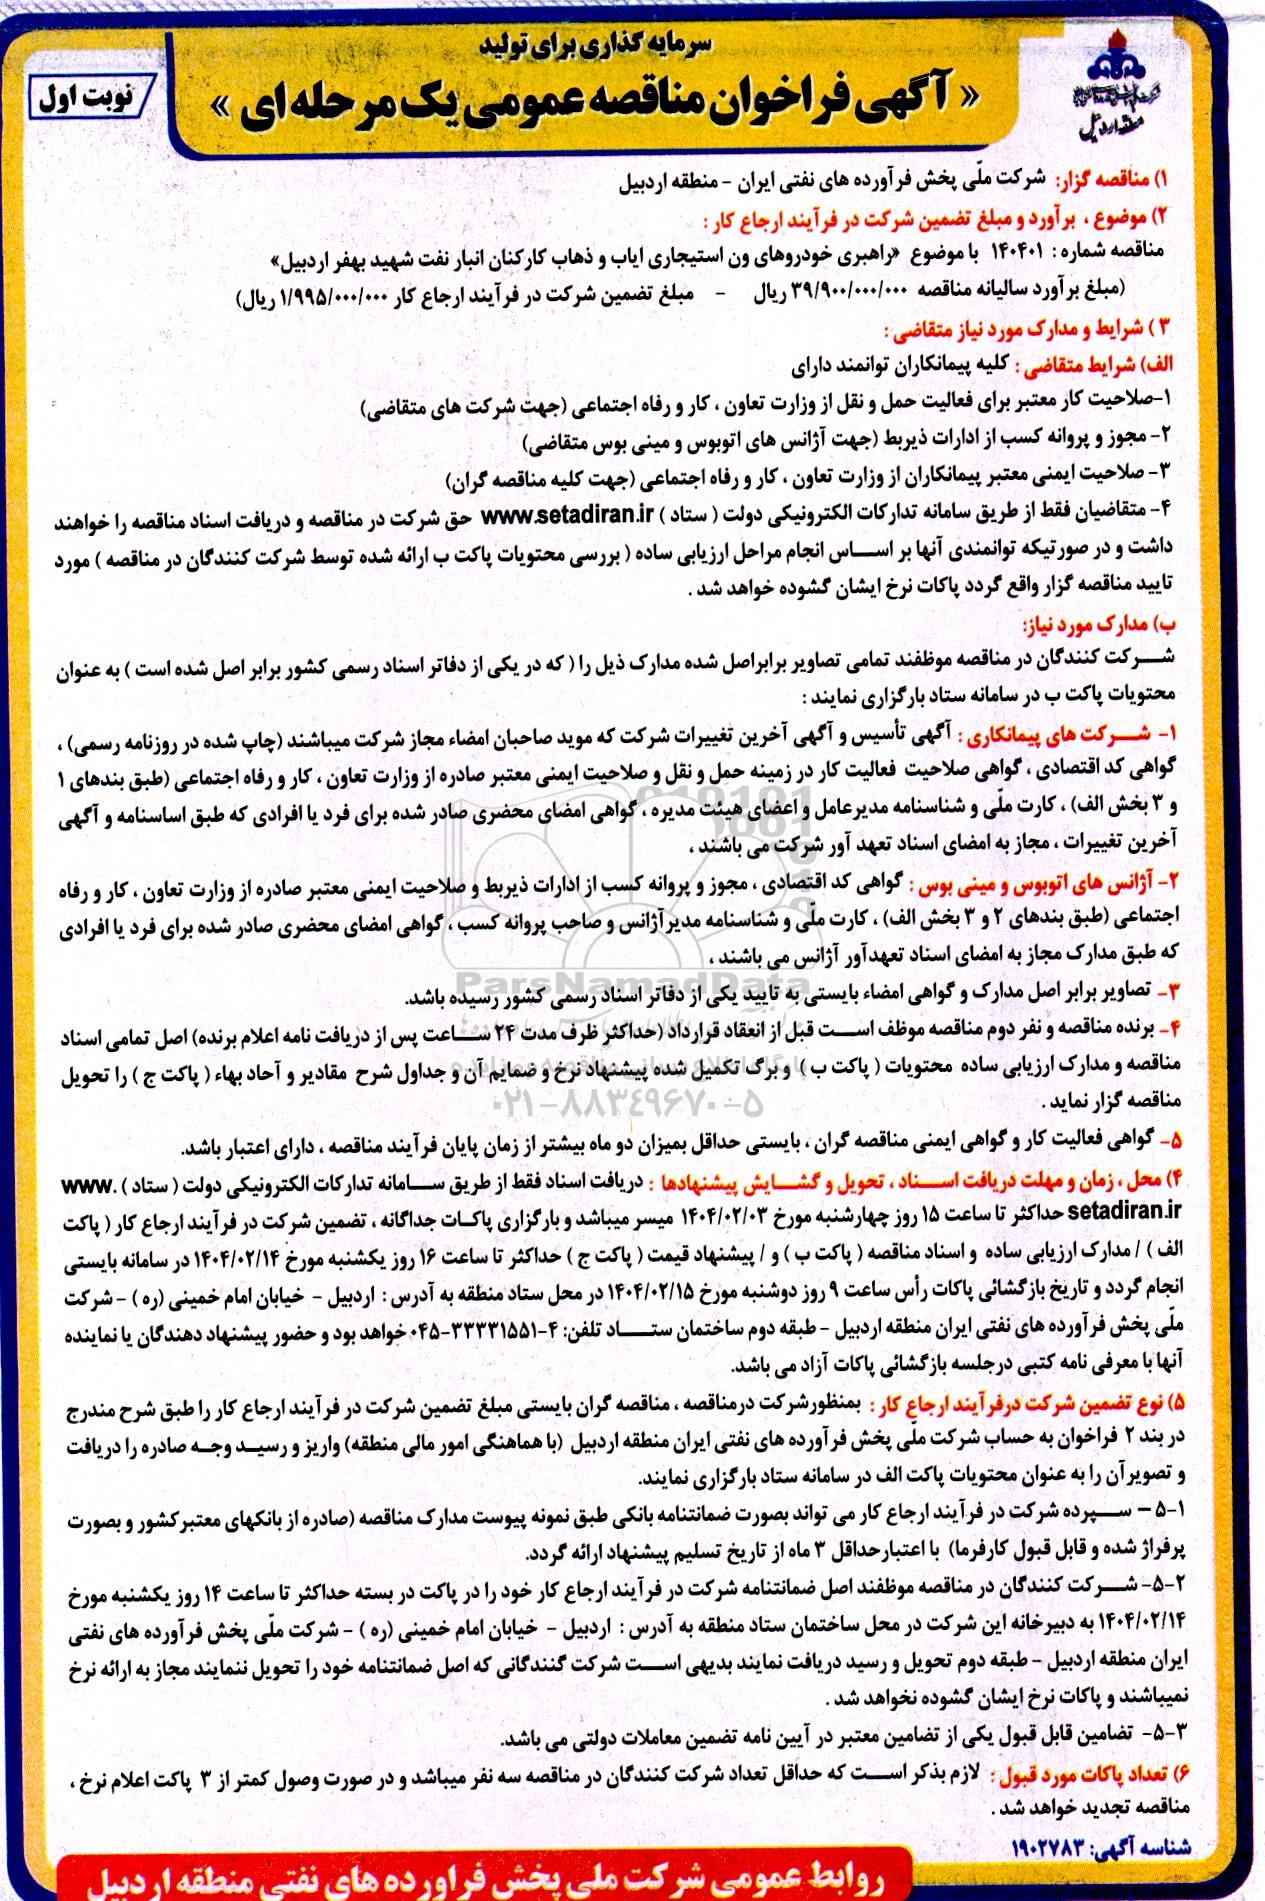 سرمایه گذاری برای تولید
« آگهی فراخوان مناقصه عمومی یک مرحله ای »
نوبت اول
منطقه اردبیل
۱) مناقصه گزار: شرکت ملّی پخش فرآورده های نفتی ایران - منطقه اردبیل
۲) موضوع ، برآورد و مبلغ تضمین شرکت در فرآیند ارجاع کار :
مناقصه شماره : ۱۴۰۴۰۱ با موضوع «راهبری خودروهای ون استیجاری ایاب و ذهاب کارکنان انبار نفت شهید بهفر اردبیل»
(مبلغ برآورد سالیانه مناقصه ۳۹/۹۰۰/۰۰۰/۰۰۰ ریال - مبلغ تضمین شرکت در فرآیند ارجاع کار ۱/۹۹۵/۰۰۰/۰۰۰ ریال)
۳ ) شرایط و مدارک مورد نیاز متقاضی :
الف) شرایط متقاضی : کلیه پیمانکاران توانمند دارای
۱-صلاحیت کار معتبر برای فعالیت حمل و نقل از وزارت تعاون ، کار و رفاه اجتماعی (جهت شرکت های متقاضی)
۲- مجوز و پروانه کسب از ادارات ذیربط (جهت آژانس های اتوبوس و مینی بوس متقاضی)
۳- صلاحیت ایمنی معتبر پیمانکاران از وزارت تعاون ، کار و رفاه اجتماعی (جهت کلیه مناقصه گران)
۴- متقاضیان فقط از طریق سامانه تدارکات الکترونیکی دولت ( ستاد ) www.setadiran.ir حق شرکت در مناقصه و دریافت اسناد مناقصه را خواهند
داشت و در صورتیکه توانمندی آنها بر اساس انجام مراحل ارزیابی ساده ( بررسی محتویات پاکت ب ارائه شده توسط شرکت کنندگان در مناقصه ) مورد
تایید مناقصه گزار واقع گردد پاکات نرخ ایشان گشوده خواهد شد .
ب) مدارک مورد نیاز:
شرکت کنندگان در مناقصه موظفند تمامی تصاویر برابراصل شده مدارک ذیل را ( که در یکی از دفاتر اسناد رسمی کشور برابر اصل شده است ) به عنوان
محتویات پاکت ب در سامانه ستاد بارگزاری نمایند :
۱- شرکت های پیمانکاری : آگهی تأسیس و آگهی آخرین تغییرات شرکت که موید صاحبان امضاء مجاز شرکت میباشند (چاپ شده در روزنامه رسمی) ،
گواهی کد اقتصادی ، گواهی صلاحیت فعالیت کار در زمینه حمل و نقل و صلاحیت ایمنی معتبر صادره از وزارت تعاون ، کار و رفاه اجتماعی (طبق بندهای ۱
و ۳ بخش الف) ، کارت ملّی و شناسنامه مدیرعامل و اعضای هیئت مدیره ، گواهی امضای محضری صادر شده برای فرد یا افرادی که طبق اساسنامه و آگهی
آخرین تغییرات ، مجاز به امضای اسناد تعهد آور شرکت می باشند ،
۲- آژانس های اتوبوس و مینی بوس : گواهی کد اقتصادی ، مجوز و پروانه کسب از ادارات ذیربط و صلاحیت ایمنی معتبر صادره از وزارت تعاون ، کار و رفاه
اجتماعی (طبق بندهای ۲ و ۳ بخش الف) ، کارت ملّی و شناسنامه مدیرآژانس و صاحب پروانه کسب ، گواهی امضای محضری صادر شده برای فرد یا افرادی
که طبق مدارک مجاز به امضای اسناد تعهدآور آژانس می باشند ،
ParsNamadData
۳- تصاویر برابر اصل مدارک و گواهی امضاء بایستی به تایید یکی از دفاتر اسناد رسمی کشور رسیده باشد.
۴- برنده مناقصه و نفر دوم مناقصه موظف است قبل از انعقاد قرارداد (حداکثر ظرف مدت ۲۴ ساعت پس از دریافت نامه اعلام برنده) اصل تمامی اسناد
مناقصه و مدارک ارزیابی ساده محتویات ( پاکت ب ) وبرگ تکمیل شده پیشنهاد نرخ و ضمایم آن و جداول شرح مقادیر و آحاد بهاء ( پاکت ج ) را تحویل
مناقصه گزار نماید .
۰۲۱-۸۸۳۴۹۶۷۰-۵
۵- گواهی فعالیت کار و گواهی ایمنی مناقصه گران ، بایستی حداقل بمیزان دو ماه بیشتر از زمان پایان فرآیند مناقصه ، دارای اعتبار باشد.
۴) محل ، زمان و مهلت دریافت اسناد ، تحویل و گشایش پیشنهادها : دریافت اسناد فقط از طریق سامانه تدارکات الکترونیکی دولت ( ستاد ) www.
setadiran.ir حداکثر تا ساعت ۱۵ روز چهارشنبه مورخ ۱۴۰۴/۰۲/۰۳ میسر میباشد و بارگزاری پاکات جداگانه ، تضمین شرکت در فرآیند ارجاع کار ( پاکت
الف ) / مدارک ارزیابی ساده و اسناد مناقصه ( پاکت ب ) و / پیشنهاد قیمت ( پاکت ج ) حداکثر تا ساعت ۱۶ روز یکشنبه مورخ ۱۴۰۴/۰۲/۱۴ در سامانه بایستی
انجام گردد و تاریخ بازگشائی پاکات رأس ساعت ۹ روز دوشنبه مورخ ۱۴۰۴/۰۲/۱۵ در محل ستاد منطقه به آدرس : اردبیل - خیابان امام خمینی (ره ) - شرکت
ملّی پخش فرآورده های نفتی ایران منطقه اردبیل - طبقه دوم ساختمان ستاد تلفن: ۴-۳۳۳۳۱۵۵۱-۰۴۵ خواهد بود و حضور پیشنهاد دهندگان یا نماینده
آنها با معرفی نامه کتبی درجلسه بازگشائی پاکات آزاد می باشد.
۵) نوع تضمین شرکت درفرآیند ارجاع کار : بمنظورشرکت درمناقصه ، مناقصه گران بایستی مبلغ تضمین شرکت در فرآیند ارجاع کار را طبق شرح مندرج
در بند ۲ فراخوان به حساب شرکت ملّی پخش فرآورده های نفتی ایران منطقه اردبیل (با هماهنگی امور مالی منطقه) واریز و رسید وجه صادره را دریافت
و تصویرآن را به عنوان محتویات پاکت الف در سامانه ستاد بارگزاری نمایند.
۵-۱ – سپرده شرکت در فرآیند ارجاع کار می تواند بصورت ضمانتنامه بانکی طبق نمونه پیوست مدارک مناقصه (صادره از بانکهای معتبرکشور و بصورت
پرفراژ شده و قابل قبول کارفرما) با اعتبارحداقل ۳ ماه از تاریخ تسلیم پیشنهاد ارائه گردد.
۵-۲- شرکت کنندگان در مناقصه موظفند اصل ضمانتنامه شرکت در فرآیند ارجاع کار خود را در پاکت در بسته حداکثر تا ساعت ۱۴ روز یکشنبه مورخ
۱۴۰۴/۰۲/۱۴ به دبیرخانه این شرکت در محل ساختمان ستاد منطقه به آدرس : اردبیل - خیابان امام خمینی (ره ) - شرکت ملّی پخش فرآورده های نفتی
ایران منطقه اردبیل - طبقه دوم تحویل و رسید دریافت نمایند بدیهی است شرکت گنندگانی که اصل ضمانتنامه خود را تحویل ننمایند مجاز به ارائه نرخ
نمیباشند و پاکات نرخ ایشان گشوده نخواهد شد .
۵-۳- تضامین قابل قبول یکی از تضامین معتبر در آیین نامه تضمین معاملات دولتی می باشد.
۶) تعداد پاکات مورد قبول : لازم بذکر است که حداقل تعداد شرکت کنندگان در مناقصه سه نفر میباشد و در صورت وصول کمتر از ۳ پاکت اعلام نرخ ،
مناقصه تجدید خواهد شد .
شناسه آگهی: ۱۹۰۲۷۸۳
روابط عمومی شرکت ملی پخش فراورده های نفتی منطقه اردبیل